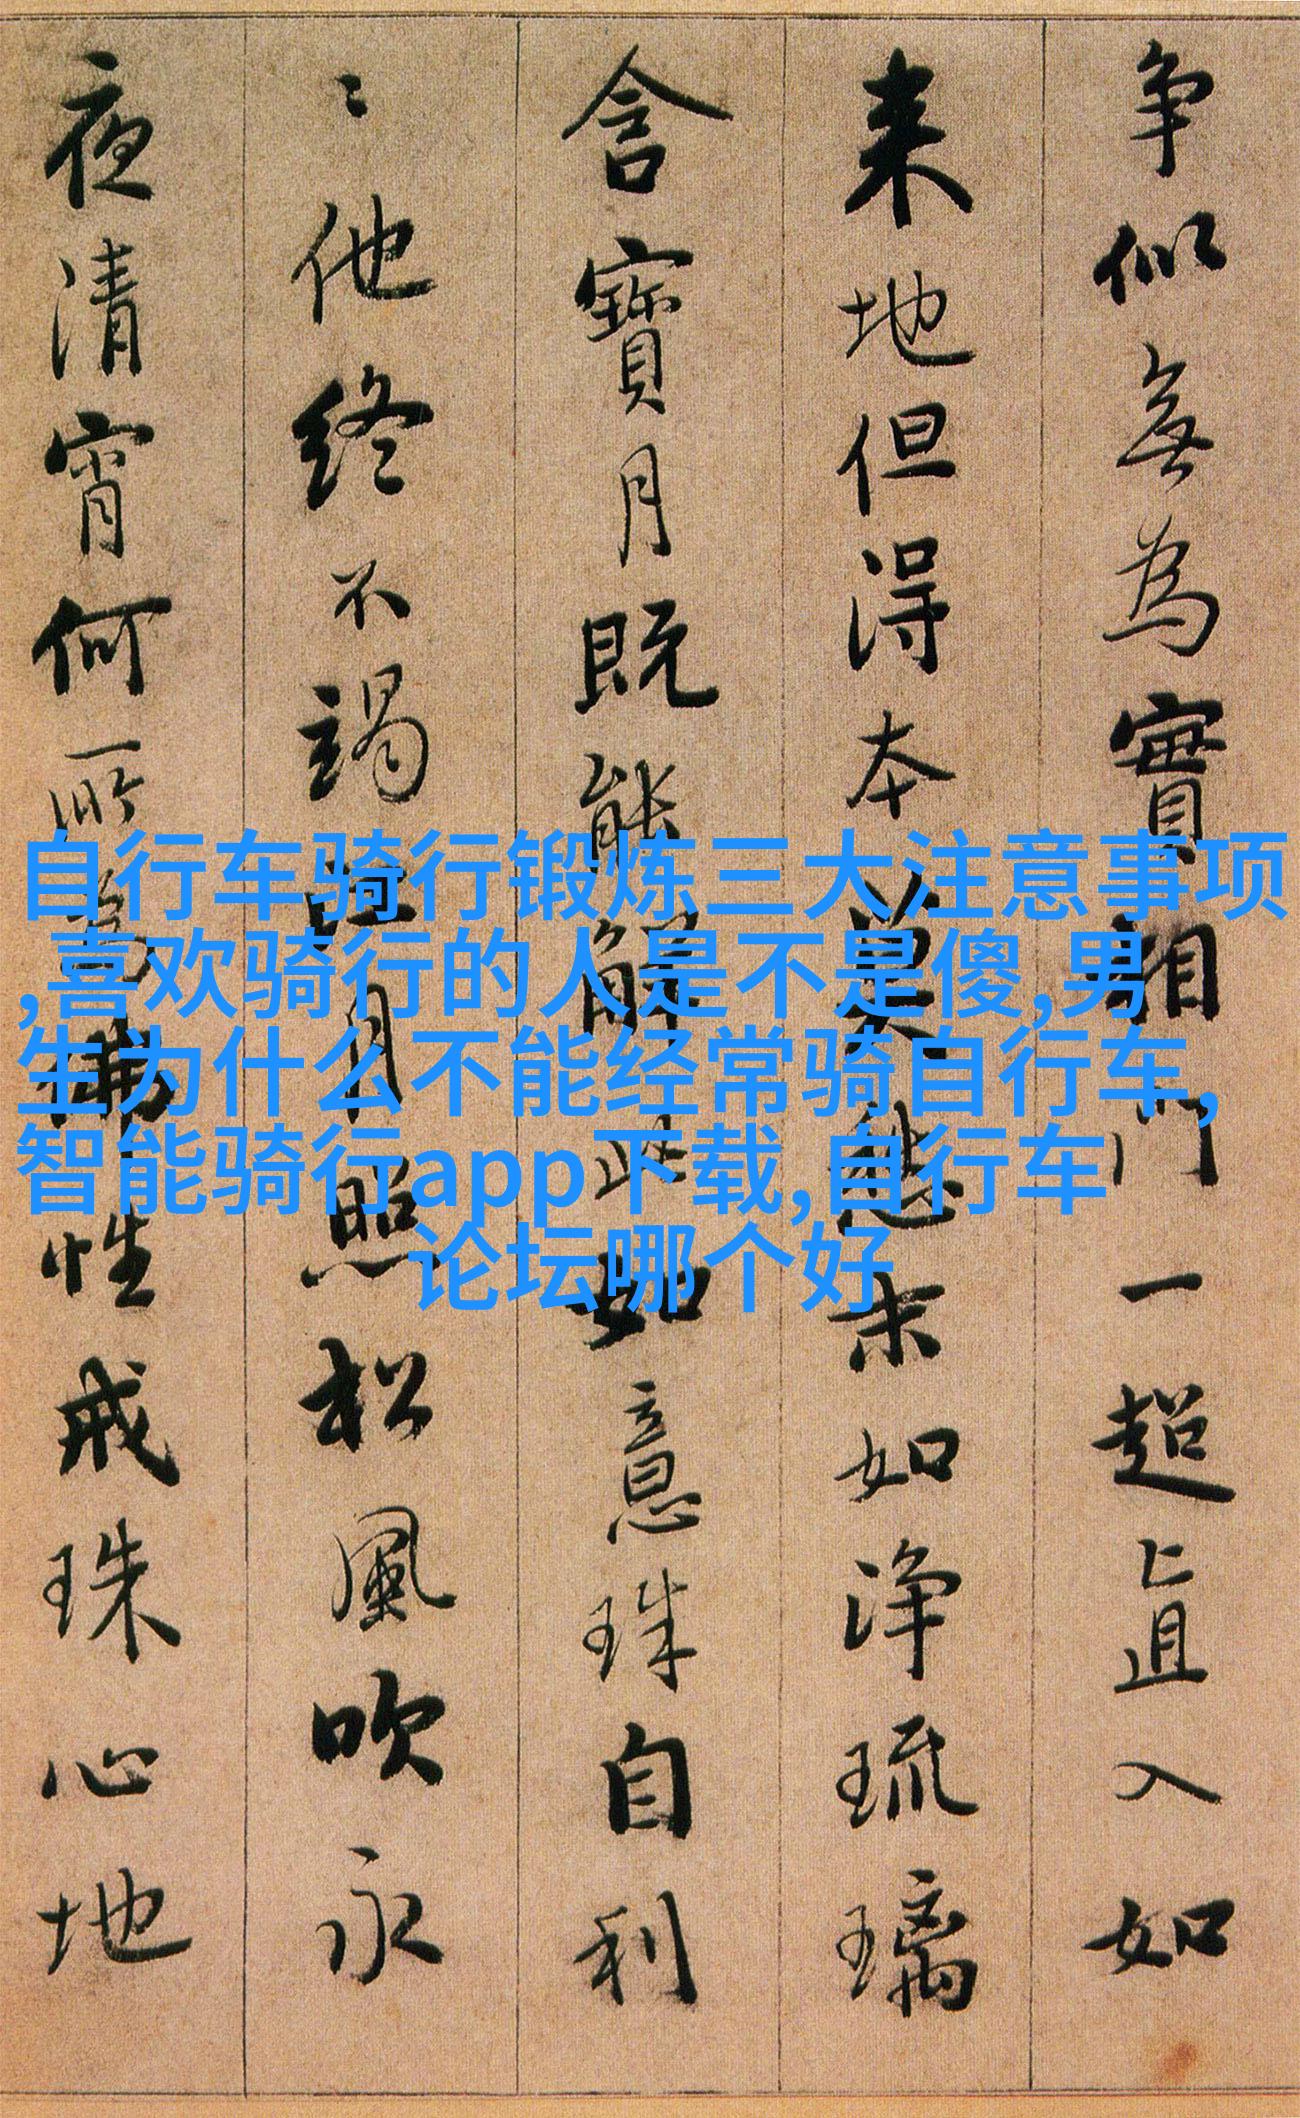 争似無為實相門一超直入如
来地但得本莫愁末如淨琉璃
含寶月既能解此如意珠自利
〻他終不竭江月照松風吹永
夜清宵何所為佛性戒珠心地
自行车骑行锻炼三大注意事项
,喜欢骑行的人是不是傻,男
生为什么不能经常骑自行车,
智能骑行app下载,自行车
论坛哪个好